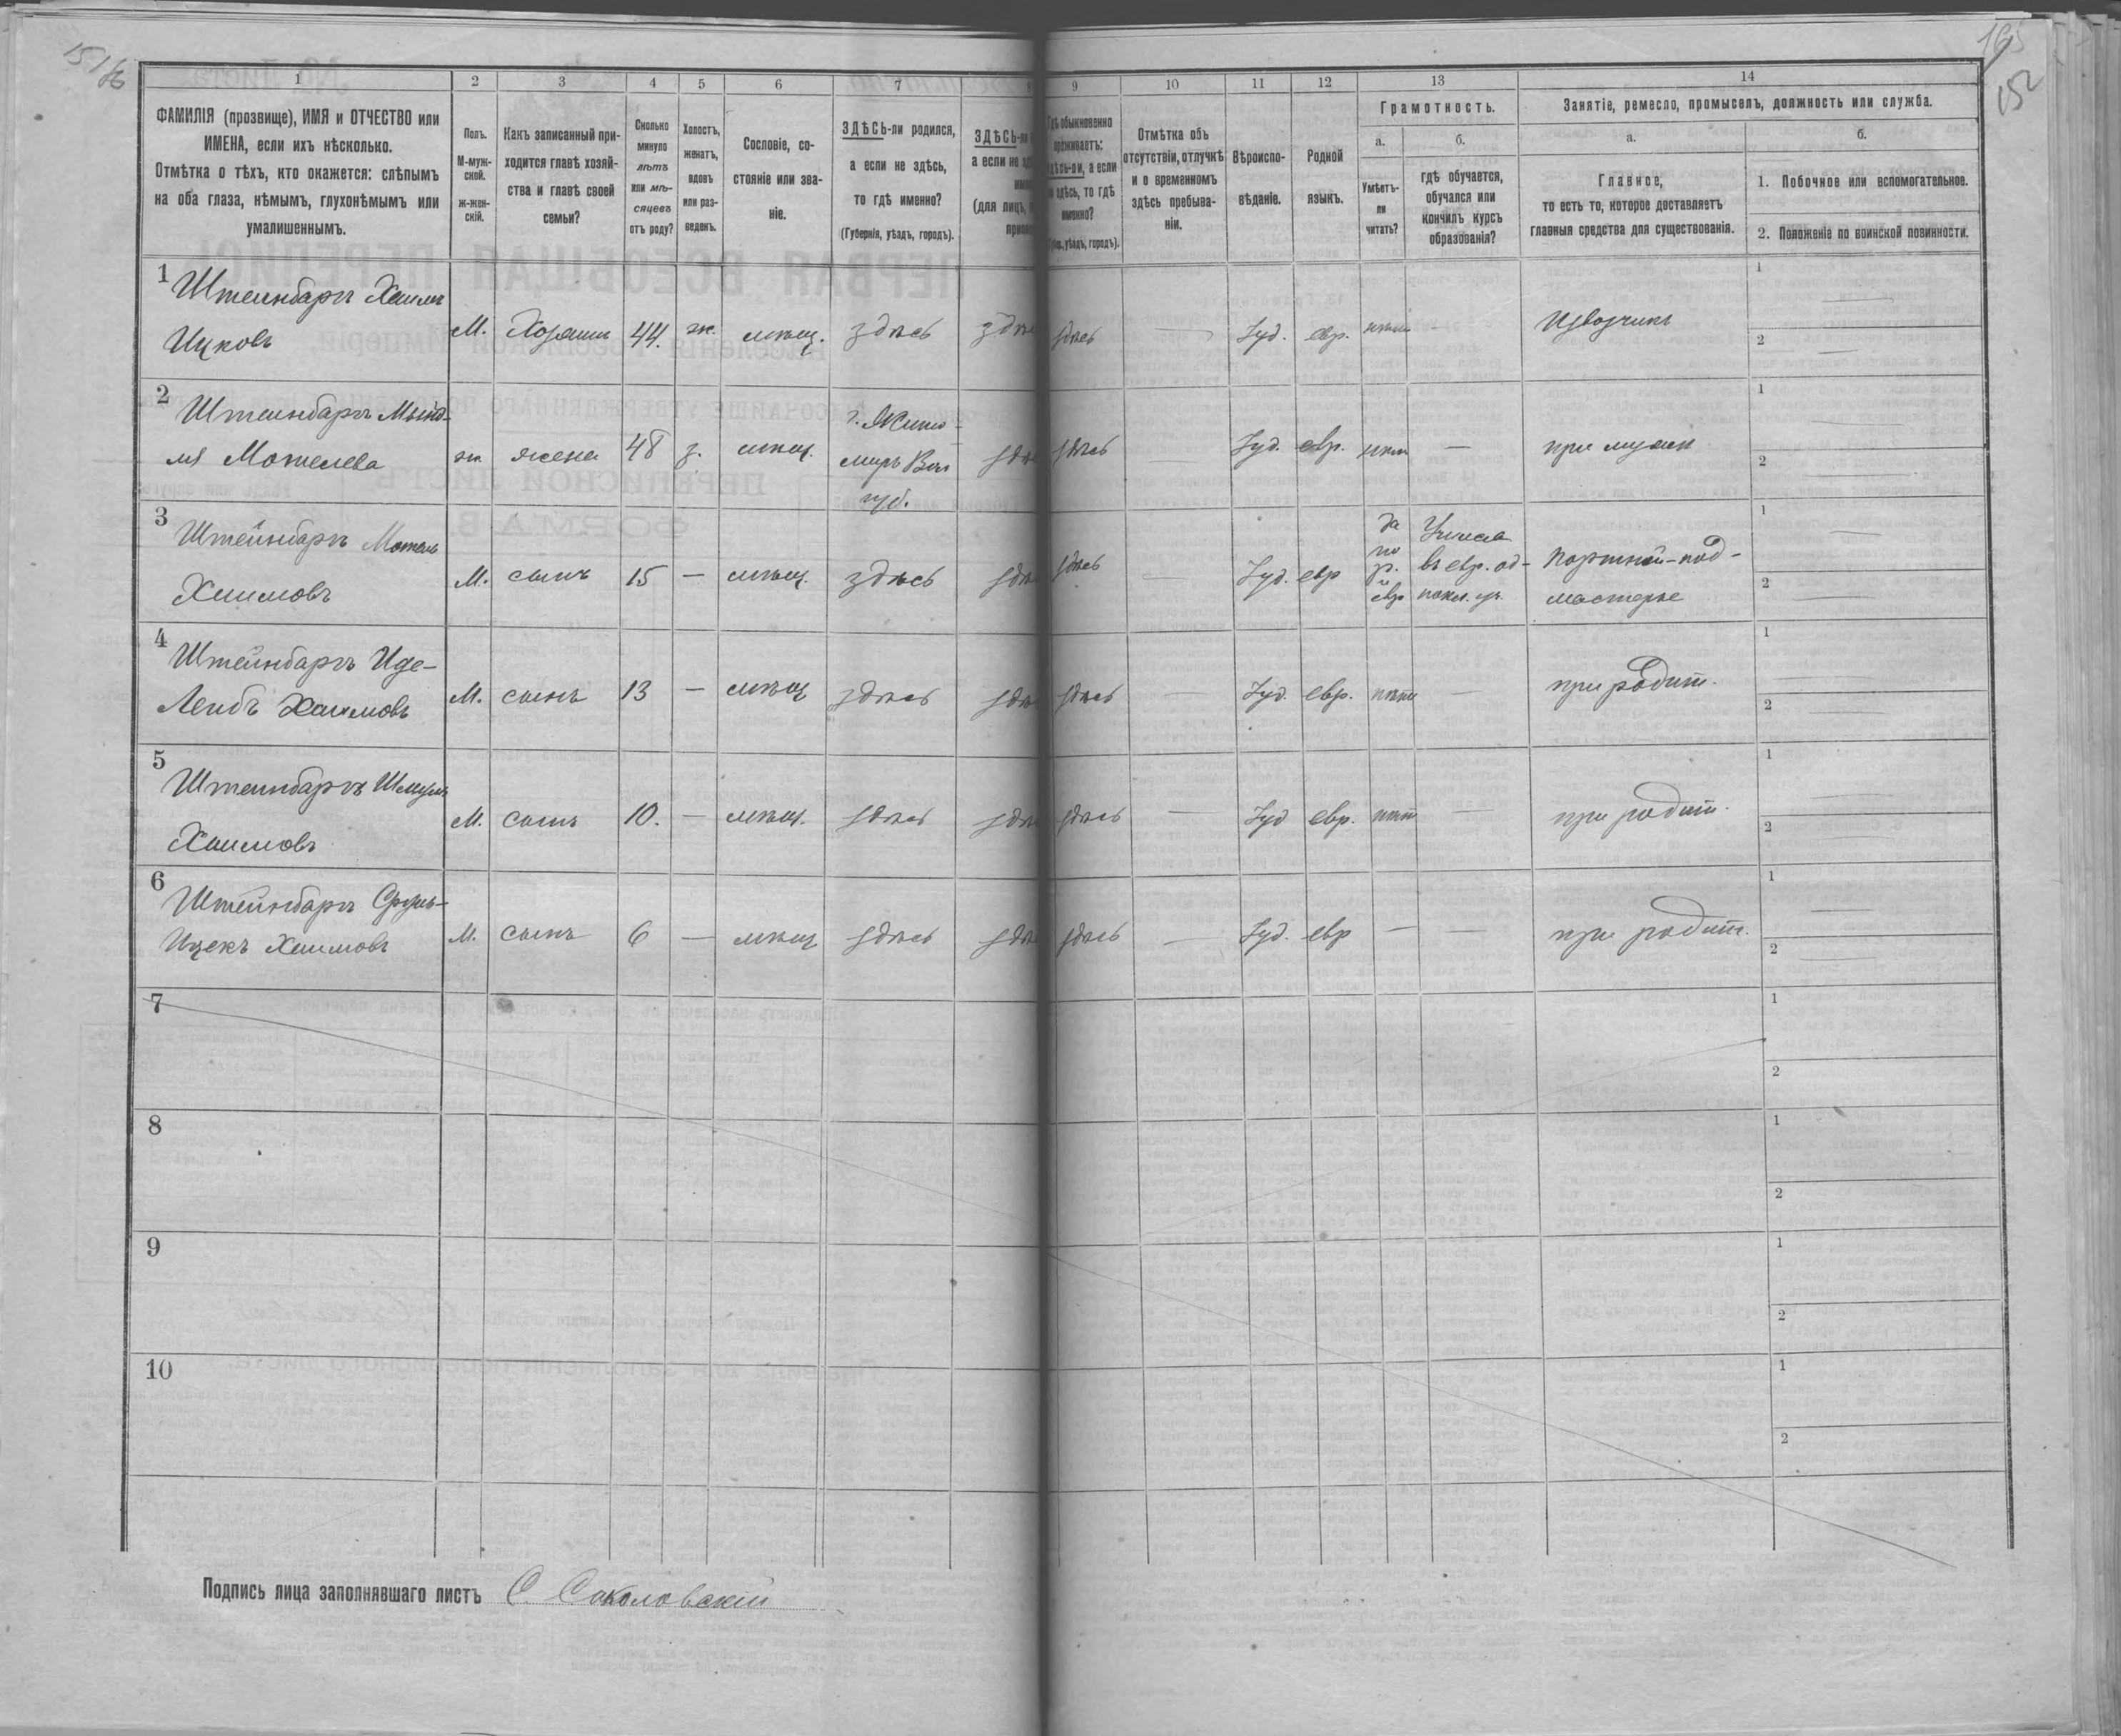 1 2 3 4 5 6 7 8
ФАМИЛІЯ (прозвище), ИМЯ и ОТЧЕСТВО или
ИМЕНА, если ихъ нѣсколько.
Отмѣтка о тѣхъ, кто окажется: слѣпымъ
на оба глаза, нѣмымъ, глухонѣмымъ или
умалишеннымъ.
Полъ.
М-муж-
ской.
ж-жен-
скій.
Какъ записанный при-
ходится главѣ хозяй-
ства и главѣ своей
семьи?
Сколько
минуло
лѣтъ
или мѣ-
сяцевъ
отъ роду?
Холостъ,
женатъ,
вдовъ
или раз-
веденъ.
Сословіе, со-
стояніе или зва-
ніе.
ЗДѢСЬ-ли родился,
а если не здѣсь,
то гдѣ именно?
(Губернія, уѣздъ, городъ).
ЗДѢСЬ-ли
а если не
(для лицъ,
9 10 11 12 13 14
Гдѣ обыкновенно
проживаетъ:
здѣсь-ли, а если
не здѣсь, то гдѣ
именно?
уѣздъ, городъ).
Отмѣтка объ
отсутствіи, отлучкѣ
и о временномъ
здѣсь пребыва-
ніи.
Вѣроиспо-
вѣданіе.
Родной
языкъ.
Грамотность.
а.
Умѣетъ-
ли
читать?
б.
гдѣ обучается,
обучался или
кончилъ курсъ
образованія?
Занятіе, ремесло, промыселъ, должность или служба.
а.
Главное,
то есть то, которое доставляетъ
главныя средства для существованія.
б.
1. Побочное или вспомогательное.
2. Положеніе по воинской повинности.
1 Штейнбаргъ Хаимъ
Ицковъ М. Хозяинъ 44. ж. мѣщ. здѣсь здѣ здѣсь Іуд. евр. нѣтъ — Извозчикъ
1
2
2 Штейнбаргъ
Мотелева ж. жена 48 з. мѣщ. г. Жито-
миръ Вол.
губ. здѣ здѣсь — Іуд. евр. нѣтъ — при мужѣ
1
2
3 Штейнбаргъ Мотель
Хаимовъ М. сынъ 15 — мѣщ. здѣсь здѣ здѣсь — Іуд. евр да
по
р.
и
евр Учился
въ евр. од-
нокл. уч. портной-под-
мастерье
1
2
4 Штейнбаргъ Иде-
Лейбъ Хаимовъ М. сынъ 13 — мѣщ здѣсь здѣ здѣсь — Іуд. евр. нѣтъ — при родит.
1
2
5 Штейнбаргъ Шмуль
Хаимовъ М. сынъ 10. — мѣщ. здѣсь здѣ здѣсь — Іуд евр. нѣтъ — при родит.
1
2
6 Штейнбаргъ
Ицекъ Хаимовъ М. сынъ 6 — мѣщ здѣсь здѣ здѣсь — Іуд. евр — — при родит.
1
2
7
1
2
8
1
2
9
1
2
10
1
2
Подпись лица заполнявшаго листъ С. Соколовскій
152